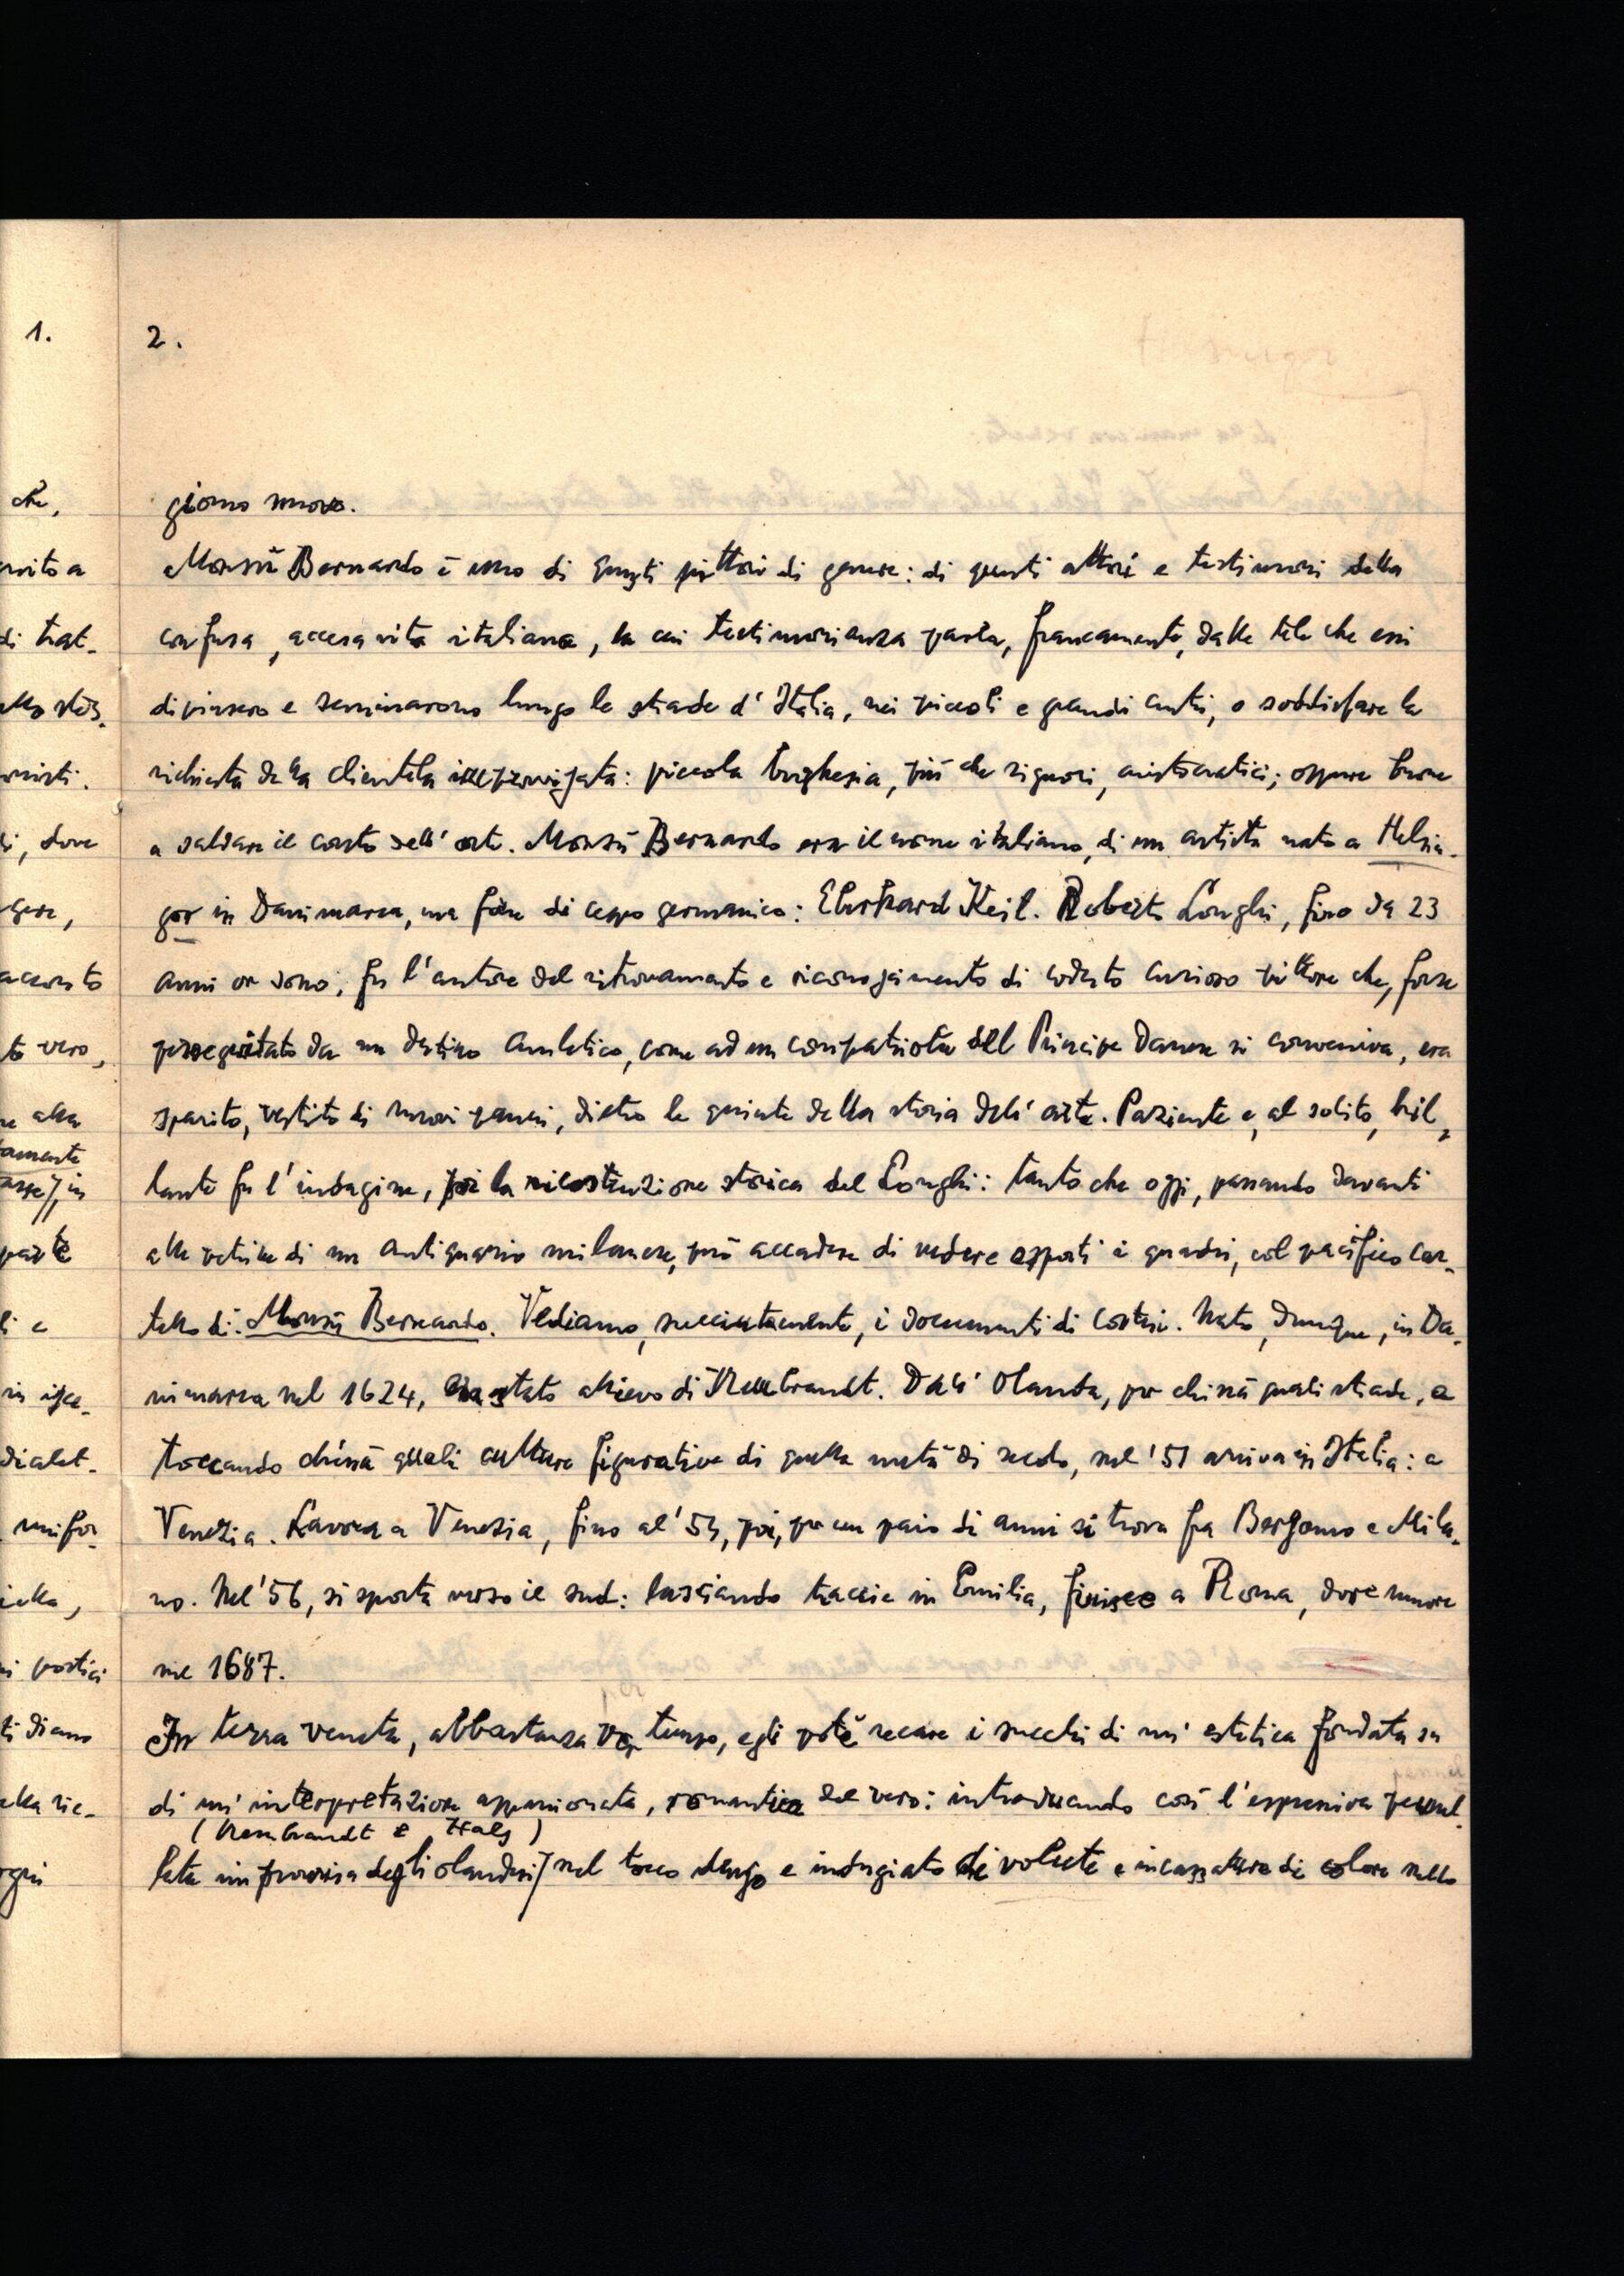 1.
2.
giorno nuovo.
Monsù Bernardo è uno di questi pittori di genere: di questi attori e testimoni della
confusa, accesa vita italiana, la cui testimonianza parla, francamente, dalle tele che essi
dipinsero e seminarono lungo le strade d'Italia, nei piccoli e grandi centri, a soddisfare la
richiesta della clientela improvvisata: piccola borghesia, più che signori, aristocratici; oppure buone
a saldare il conto dell'oste. Monsù Bernardo era il nome italiano, di un artista nato a Helsin-
gor in Danimarca, ma forse di ceppo germanico: Eberhard Keil. Roberto Longhi, fino da 23
anni or sono, fu l'autore del ritrovamento e riconoscimento di codesto curioso pittore che, forse
perseguitato da un destino amletico, come ad un compatriota del Principe Danese si conveniva, era
sparito, vestito di nuovi panni, dietro le quinte della storia dell'arte. Paziente e, al solito, bril-
lante fu l'indagine, poi la ricostruzione storica del Longhi: tanto che oggi, passando davanti
alle vetrine di un antiquario milanese, può accadere di vedere esposti i quadri, col pacifico car-
tello di: Monsù Bernardo. Vediamo, succintamente, i documenti di costui. Nato, dunque, in Da-
nimarca nel 1624, era stato allievo di Rembrandt. Dall'Olanda, per chissà quali strade, e
toccando chissà quali culture figurative di quella metà di secolo, nel '51 arriva in Italia: a
Venezia. Lavora a Venezia, fino al '54, poi, per un paio di anni si trova fra Bergamo e Mila-
no. Nel '56, si sposta verso il sud: lasciando traccie in Emilia, finisce a Roma, dove muore
nel 1687.
In terra veneta, abbastanza per tempo, egli poté recare i succhi di un'estetica fondata su
di un'interpretazione appassionata, romantica del vero: introducendo così l'espressiva pennel-
(Rembrandt e Hals)
lata improvvisa degli olandesi nel tocco denso e indugiato di volute e incassature di colore nello